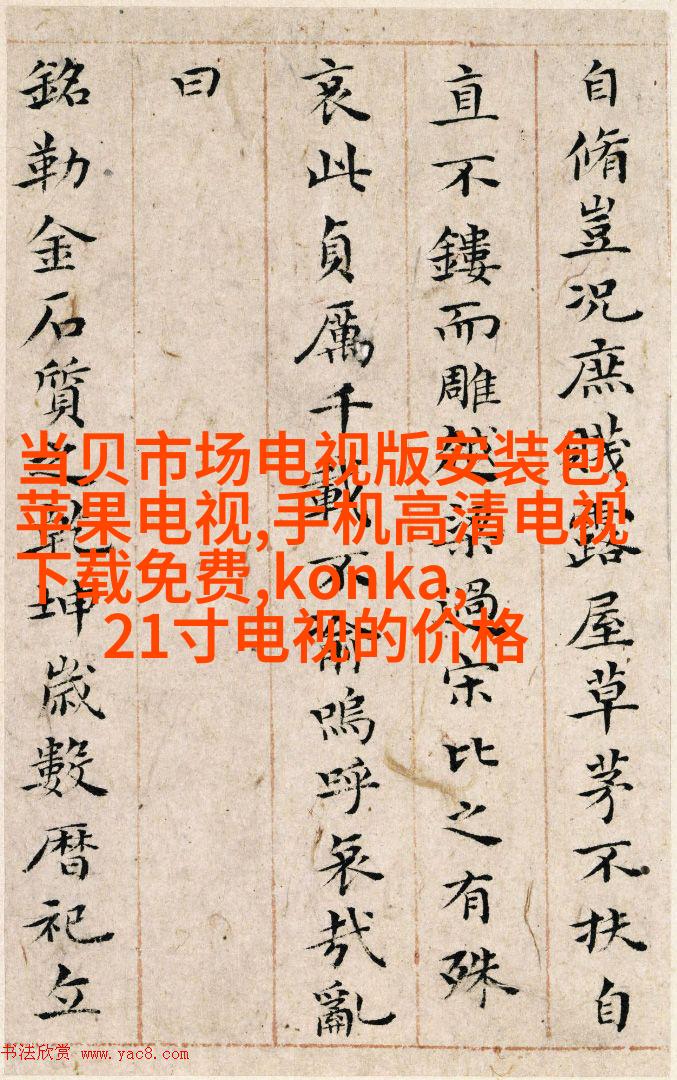 自脩豈况庶賤露屋草茅不扶自
直不鏤而雕越梁過宋比之有殊
哀此貞厲千載不渝嗚呼哀哉亂
曰
銘勒金石質之乾坤歲數暦祀立
当贝市场电视版安装包,
苹果电视,手机高清电视
下载免费,konka,
21寸电视的价格
书法欣赏 www.yac8.com